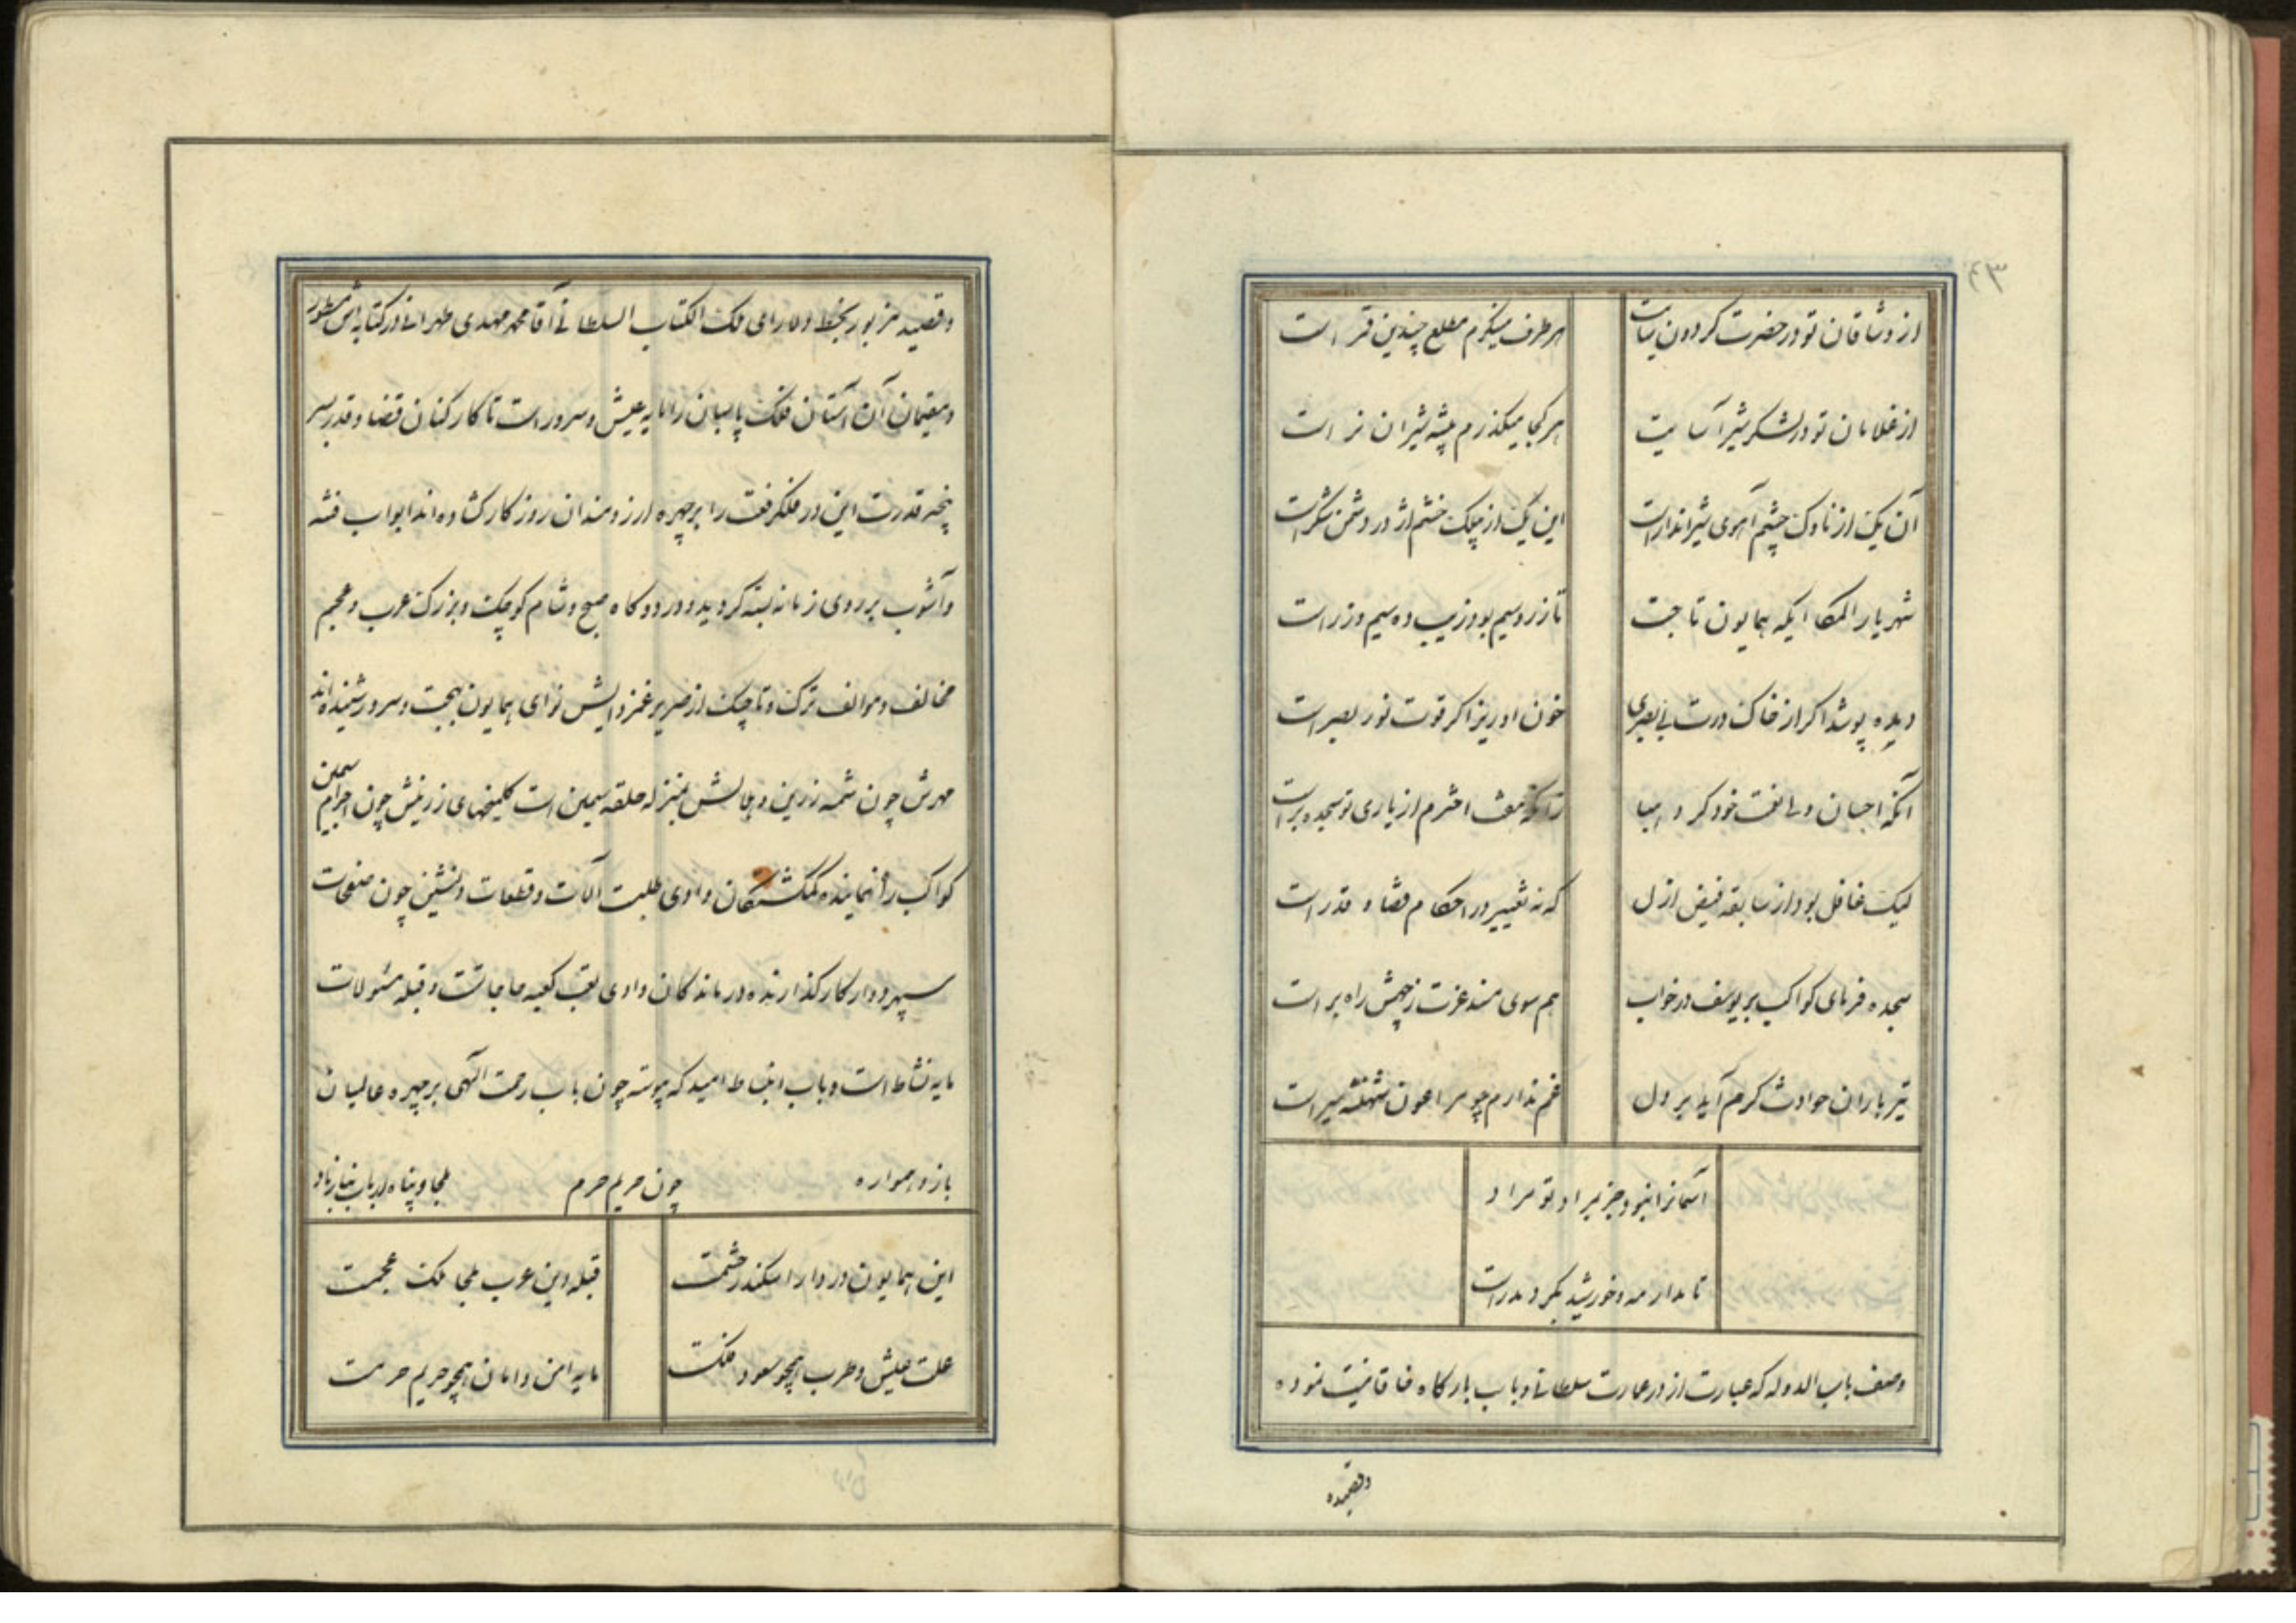 ۴۳
از وشاقان تو در حضرت گردون سایت هر طرف مینگرم مطلع چندین قمر است
از غلامان تو در لشکر شیر آسایت هر کجا میگذرم بیشه شیران نر است
آن یک از ناوک چشم آهوی شیر انداز است این یک از پیلک خشم اژدر دشمن شکر است
شهریارا ملکا ایکه همایون تاجت تا زر و سیم بود زیب ده سیم و زر است
دیده پوشد اگر از خاک درت بی بصری خون او ریز اگر قوت نور بصر است
آنکه احسان ولی نعمت خود کرد
لیک غافل بود از سابقه فیض ازل که نه تغییر در احکام قضا و قدر است
سجده فرمای کواکب بر یوسف در خواب هم سوی مسند عزت ز چهش راه بر است
تیر باران حوادث گرم آید بر دل غم ندارم چو مرا عون شهنشه سپر است
آسمانرا نبود جز بمراد تو مراد
تا مدار مه و خورشید بگرد مدر است
وصف باب الدوله که عبارت از در عمارت سلطانی و باب بارگاه خاقانیست نموده
وقصیده
وقصیده مزبور بخط دلارای ملک الکتاب السلطانی آقا محمد مهدی طهرانی در کتابه اش مسطور
و مقیمان آن آستان فلک پاسبان را مایه عیش و سرور است تا کارکنان قضا و قدر بسر
پنجه قدرت این در فلک رفعت را بر چهره ارزومندان روزگار گشاده اند ابواب فتنه
و آشوب بر روی زمانه بسته گردیده و در دوگاه صبح و شام کوچک و بزرگ عرب و عجم
مخالف و موالف ترک و تاجیک از صریر غمزدایش نوای همایون بهجت و سرور شنیده اند
مهرش چون شمسه زرین و هلالش بمنزله حلقه سیمین است گلمیخهای زرینش چون اجرام سیمین
کواکب راهنماینده گمگشتگان وادی طلبت آلات و قطعات دلنشین چون صفحات
سپهر دوار کار گذارنده درماندگان وادی تعب کعبه حاجاتست و قبله مسئولات
مایه نشاط است و باب انبساط امید که پیوسته چون باب رحمت الهی بر چهره عالمیان
باز و همواره چون حریم حرم ملجا و پناه ارباب نیاز باد
این همایون در دارا اسکندر حشمت قبله دین عرب ملجا ملک عجمست
علت عیش و طرب همچو سعود فلکت مایه امن و امان همچو حریم حرمت